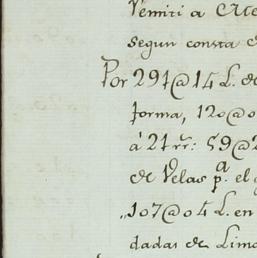 Vemiti a
segun consta
Por 291@14 L. de
forma, 120@0
á 21 rr.s 59@2
de Velas p.a el
"107@04 L. en
dadas de Lima